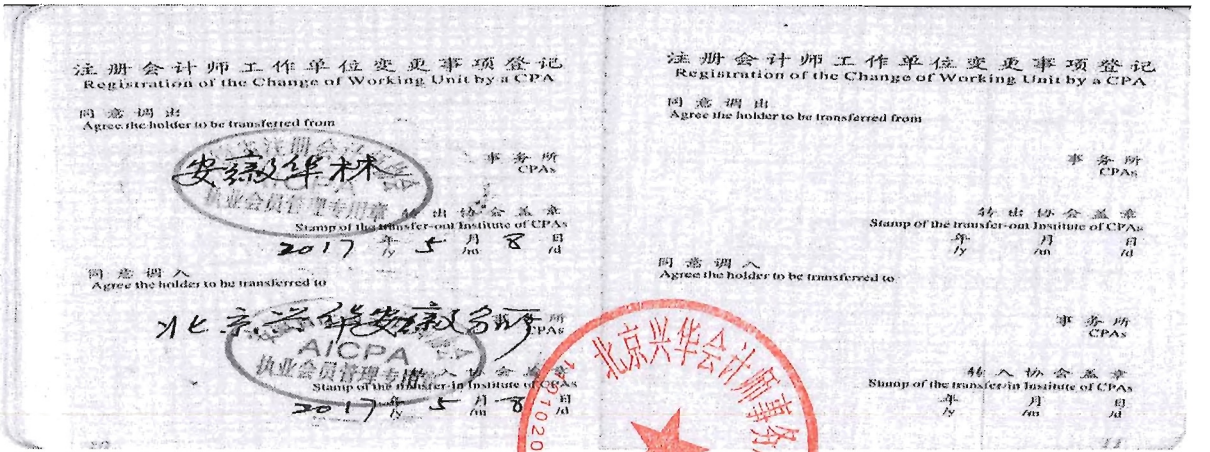 注册会计师工作单位变更事项登记
Registration of the Change of Working Unit by a CPA
同意调出
Agree the holder to be transferred from
安徽华林
事务所
CPAs
执业会员管理专用章
转出协会盖章
Stamp of the transfer-out Institute of CPAs
2017年5月8日
/y /m /d
同意调入
Agree the holder to be transferred to
北京兴华安徽分所
事务所
CPAs
AICPA
执业会员管理专用章
转入协会盖章
Stamp of the transfer-in Institute of CPAs
2017年5月8日
/y /m /d
注册会计师工作单位变更事项登记
Registration of the Change of Working Unit by a CPA
同意调出
Agree the holder to be transferred from
事务所
CPAs
转出协会盖章
Stamp of the transfer-out Institute of CPAs
年 月 日
/y /m /d
同意调入
Agree the holder to be transferred to
事务所
CPAs
转入协会盖章
Stamp of the transfer-in Institute of CPAs
年 月 日
/y /m /d
11
北京兴华会计师事务